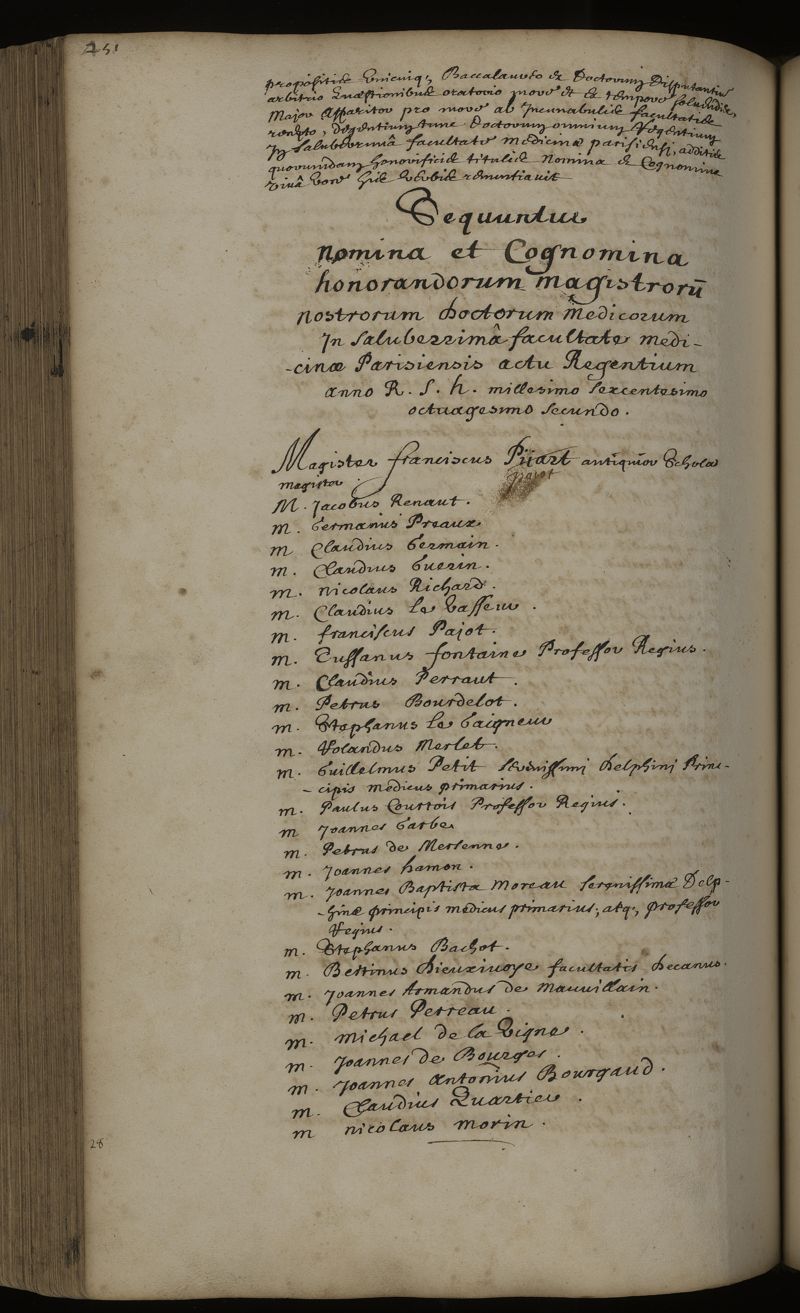 251
propositis unicuiq, Baccalaureo et Doctorum Disputantium
arbitrio Quæstionibus oratorio more et ex tempore soluendis,
Major Apparitor pro more ab Incunabulis facultatis
recepto, degentium tunc Doctorum omnium Regentium
In Saluberrimâ facultate medicinæ parisiensi, additis
quorumdam honorificis titulis Nomina et Cognomina
vivâ voce his verbis renuntiavit
Sequuntur
nomina et Cognomina
honorandorum magistrorū
nostrorum doctorum medicorum
In saluberrimâ facultate medi-
-cinæ Parisiensis actu Regentium
anno R. S. h. millesimo sexcentesimo
octuagesimo secundo.
Magister franciscus Pijart antiquior Scholæ
magister. pajot
M. Jacobus Renaut.
m. Germanus Preaux
m Claudius Germain.
m. Claudius Guerin.
m. nicolaus Richard.
m. Claudius Le Vasseur.
m. franciscus Pajot.
m. Tussanus fontaine Professor Regius.
m. Claudius Perraut.
m. Petrus Bourdelot.
m. Stephanus Le Gaigneur
m. Rolandus Merlet.
m. Guillelmus Petit serenissimj delphinj Prin-
-cipis medicus primarius.
m. Paulus Courtois Professor Regius.
m Joannes Garbe
m. Petrus de Mersenne.
m. Joannes hamon.
m. Joannes Baptista Moreau serenissimæ Delp-
-hinæ principis medicus primarius, atq, professor
Regius.
m. Stephanus Bachot.
m. Bertinus dieuxivoye facultatis decanus.
m. Joannes Armandus de mauuillain.
m. Petrus Perreau.
m. michael de la Vigne.
m. Joannes de Bourges.
m. Joannes Antonius Bourgaud.
m. Claudius Quartier.
m nicolaus morin.
28